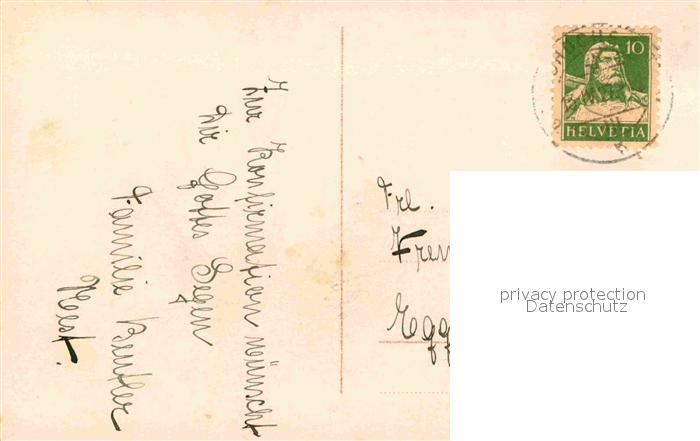 Zur Konfirmation wünscht
Dir Gottes Segen
Familie Beutler
10
HELVETIA
Frl.
privacy protection
Datenschutz